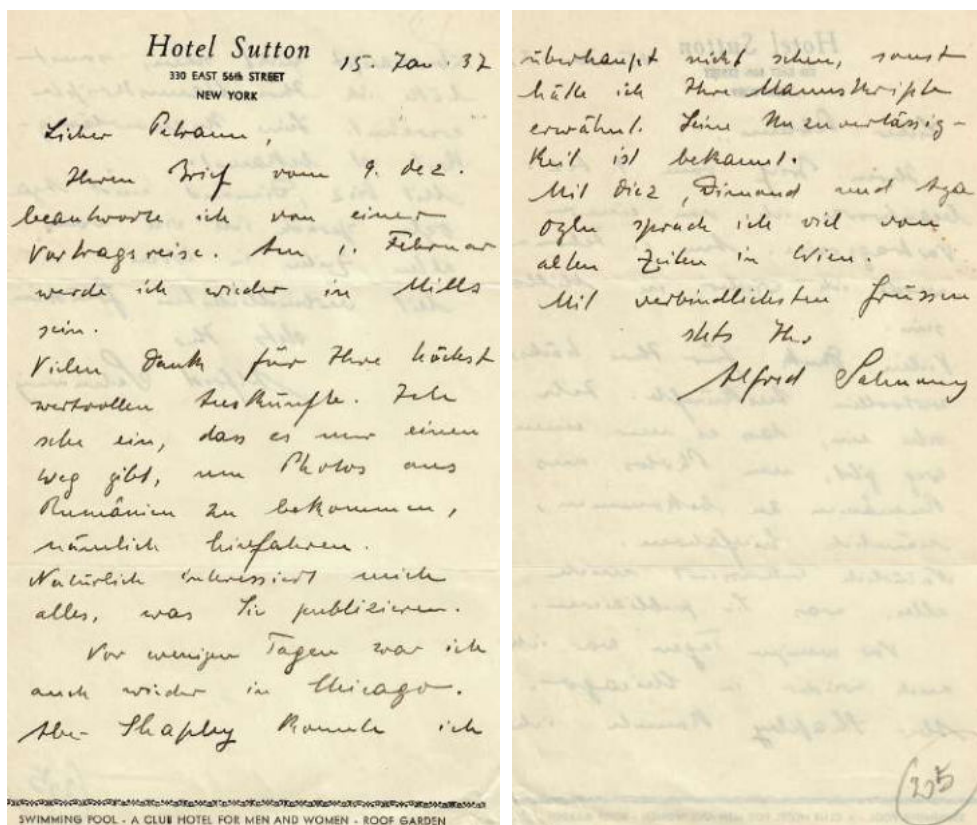 Hotel Sutton
330 EAST 56th STREET
NEW YORK
15. Jan. 37
Lieber
Ihren Brief vom 9. Dez.
beantworte ich von einer
Vortragsreise. Am 1. Februar
werde ich wieder in Mills
sein.
Vielen Dank für Ihre höchst
wertvollen Auskünfte. Ich
sehe ein, dass es nur einen
Weg gibt, um Photos aus
Rumänien zu bekommen,
nämlich hinfahren.
Natürlich interessiert mich
alles, was Sie publizieren.
Vor wenigen Tagen war ich
auch wieder in Chicago.
Aber Shapley konnte ich
SWIMMING POOL - A CLUB HOTEL FOR MEN AND WOMEN - ROOF GARDEN
überhaupt nicht sehen, sonst
hätte ich Ihre Manuskripte
erwähnt. Seine Unzuverlässig-
keit ist bekannt.
Mit Diez, Dimand und Aga
Oglu sprach ich viel von
alten Zeiten in Wien.
Mit verbindlichsten Grüssen
stets Ihr
Alfred Salmony
205